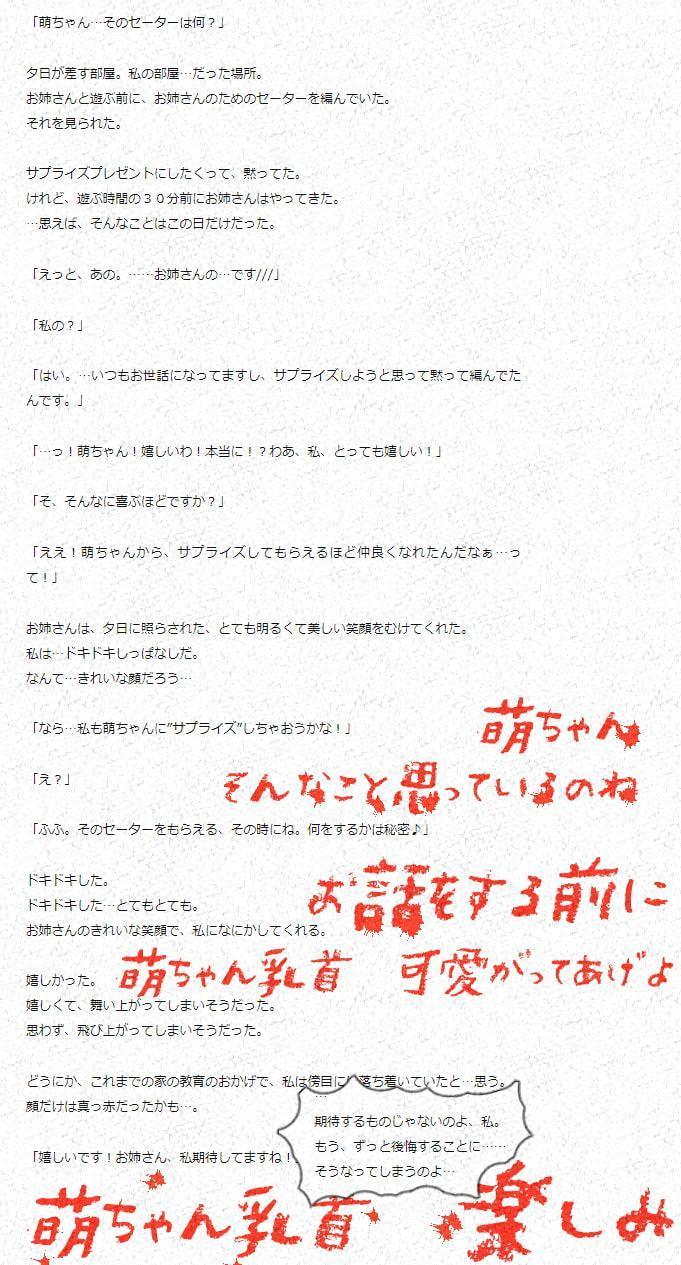 「萌ちゃん…そのセーターは何？」
夕日が差す部屋。私の部屋…だった場所。
お姉さんと遊ぶ前に、お姉さんのためのセーターを編んでいた。
それを見られた。
サプライズプレゼントにしたくって、黙ってた。
けれど、遊ぶ時間の３０分前にお姉さんはやってきた。
…思えば、そんなことはこの日だけだった。
「えっと、あの。……お姉さんの…です///」
「私の？」
「はい。…いつもお世話になってますし、サプライズしようと思って黙って編んでた
んです。」
「…っ！萌ちゃん！嬉しいわ！本当に！？わあ、私、とっても嬉しい！」
「そ、そんなに喜ぶほどですか？」
「ええ！萌ちゃんから、サプライズしてもらえるほど仲良くなれたんだなぁ…っ
て！」
お姉さんは、夕日に照らされた、とても明るくて美しい笑顔をむけてくれた。
私は…ドキドキしっぱなしだ。
なんて…きれいな顔だろう…
「なら…私も萌ちゃんに”サプライズ”しちゃおうかな！」
萌ちゃん
「え？」
そんなこと思っているのね
「ふふ。そのセーターをもらえる、その時にね。何をするかは秘密♪」
ドキドキした。
ドキドキした…とてもとても。
お話をする前に
お姉さんのきれいな笑顔で、私になにかしてくれる。
嬉しかった。
萌ちゃん乳首　可愛がってあげよ
嬉しくて、舞い上がってしまいそうだった。
思わず、飛び上がってしまいそうだった。
どうにか、これまでの家の教育のおかげで、私は傍目には落ち着いていたと…思う。
顔だけは真っ赤だったかも…。
…
期待するものじゃないのよ、私。
もう、ずっと後悔することに……
そうなってしまうのよ…
「嬉しいです！お姉さん、私期待してますね！
萌ちゃん乳首　楽しみ